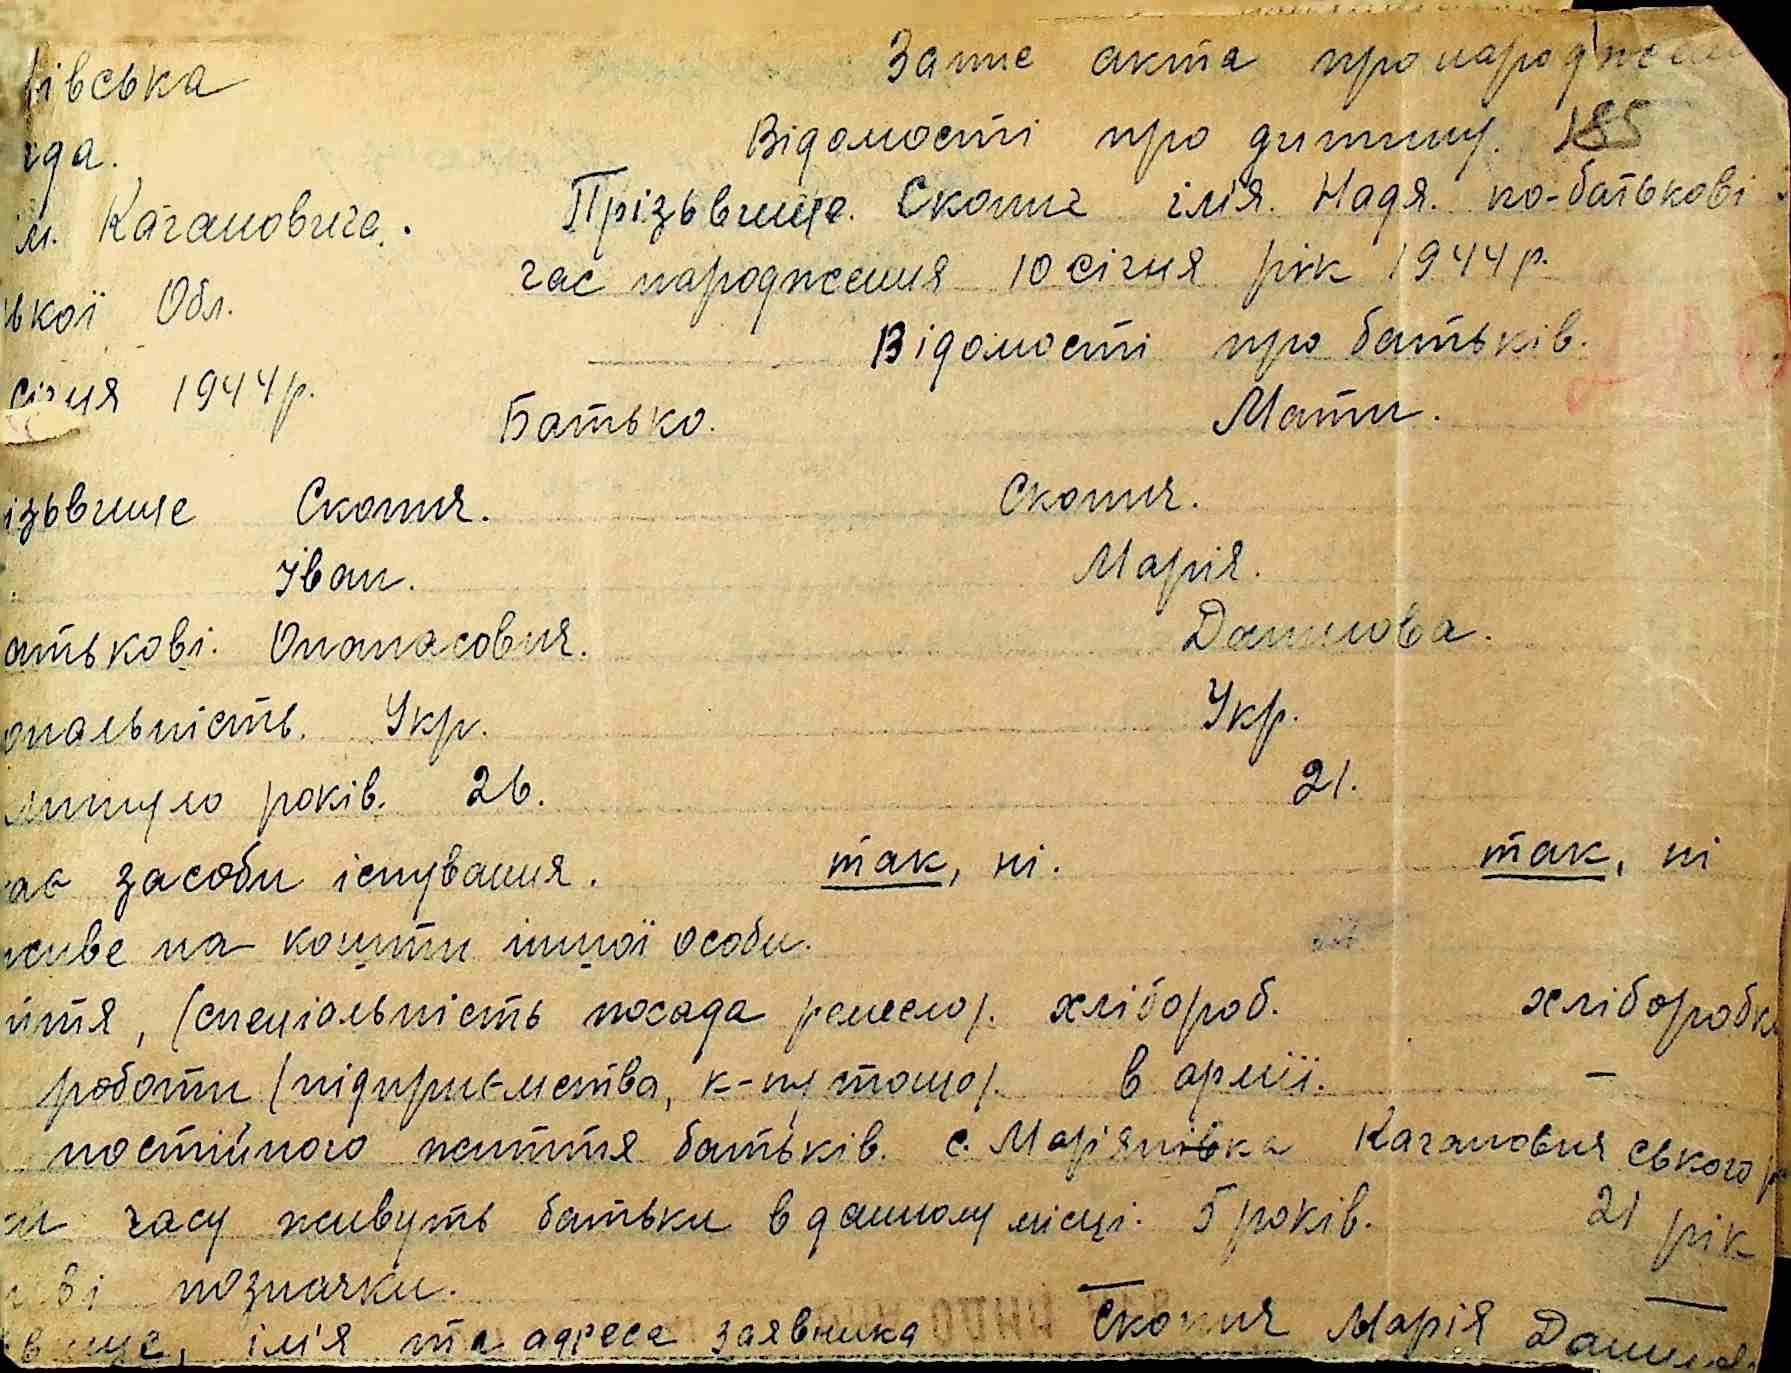 Запис акта про народження
івська
Відомості про дитину. 185
да.
Прізьвище. Скопич ім'я. Надя. по-батькові
ім. Кагановича.
час народження 10 січня рік 1944 р.
ської Обл.
Відомості про батьків.
січня 1944 р.
Батько. Мати.
ізьвище Скопич. Скопич.
Іван. Марія.
атькові. Опанасович. Данилова.
ональність. Укр. Укр.
минуло років. 26. 21.
ає засоби існування. так, ні. так, ні
живе на кошти іншої особи.
иття, (спеціальність посада ремесло). хлібороб. хліборобка
роботи (підприємства, к-пу тощо). в армії. –
постійного життя батьків. с. Мар'янівка Кагановичського р
часу живуть батьки в данному місці. 5 років. 21 рік
ві позначки. — —
вище, ім'я та адреса заявника Скопич Марія Данилов